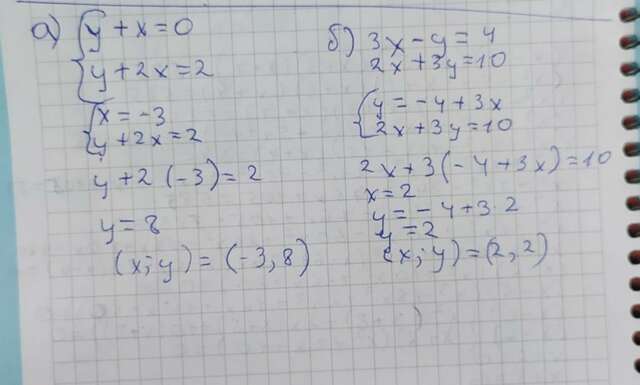 а) y + x = 0
y + 2x = 2
x = -3
y + 2x = 2
y + 2 (-3) = 2
y = 8
(x; y) = (-3, 8)
б) 3x - y = 4
2x + 3y = 10
y = -4 + 3x
2x + 3y = 10
2x + 3(-4 + 3x) = 10
x = 2
y = -4 + 3 · 2
y = 2
(x; y) = (2, 2)